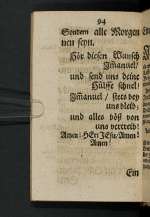 94
Sondern alle Morgen
neu seyn.
Hör diesen Wunsch
Jmanuel/
und send uns deine
Hülffe schnel/
Jmanuel/ stets bey
uns bleib;
und alles böß von
uns vertreib!
Amen! HErr JEsu Amen!
Amen!
Ein